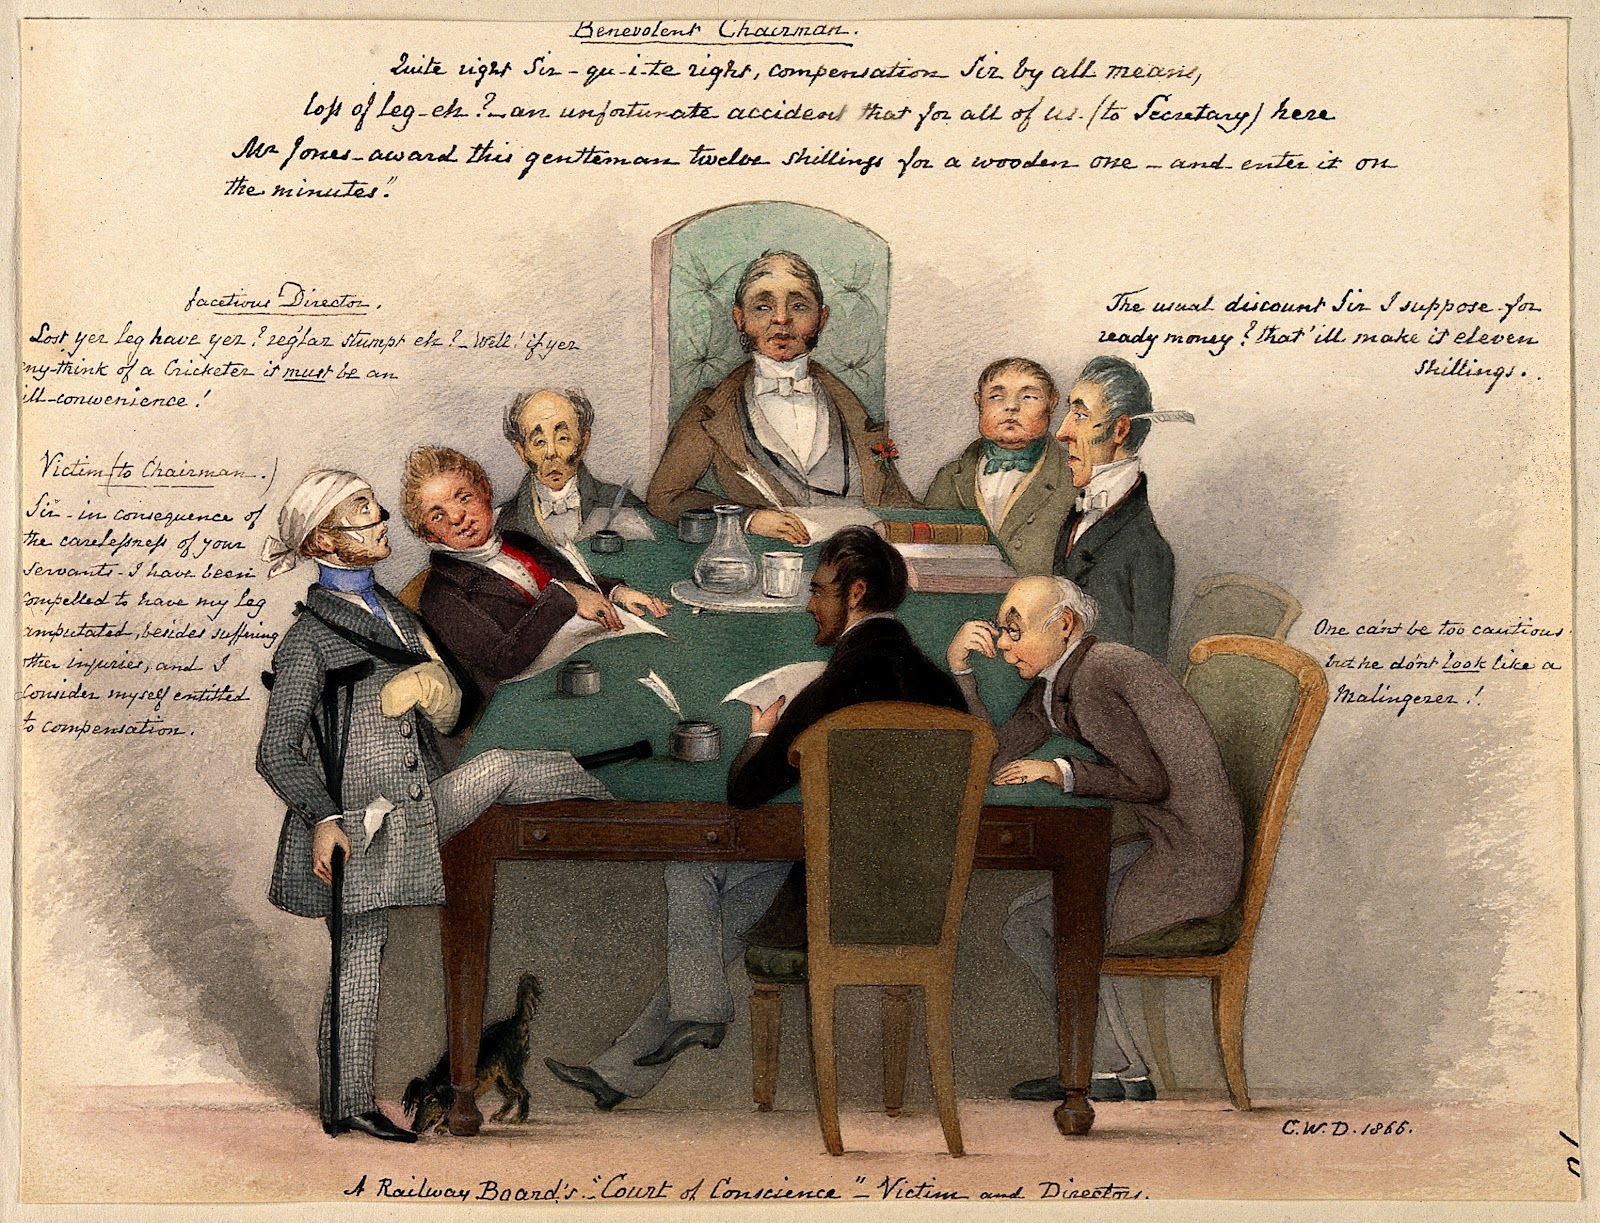 Benevolent Chairman.
Quite right Sir - qu-i-te right, compensation Sir by all means,
loss of leg - eh? - an unfortunate accident that for all of us. (to Secretary) here
Mr Jones - award this gentleman twelve shillings for a wooden one - and enter it on
the minutes."
facetious Director.
Lost yer leg have yer? reg'lar stumpt eh? - Well! if yer
ny-think of a Cricketer it must be an
ill-conwenience!
The usual discount Sir I suppose - for
ready money? that'ill make it eleven
shillings.
Victim (to Chairman.)
Sir - in consequence of
the carelessness of your
servants - I have been
compelled to have my leg
amputated, besides suffering
other injuries, and I
consider myself entitled
to compensation.
One can't be too cautious
but he don't look like a
Malingerer!
C.W.D. 1866.
A Railway Board's "Court of Conscience" - Victim and Directors.